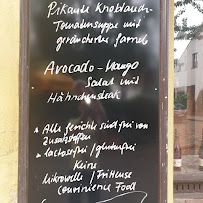 Pikante Knoblauch-
Tomatensuppe mit
geräucherten Garnel
Avocado-Mango
Salat mit
Hähnchensteak
* Alle Gerichte sind frei von
Zusatzstoffen
* lactosefrei/glutenfrei
Keine
Mikrowelle/Fritteuse
Convinience Food